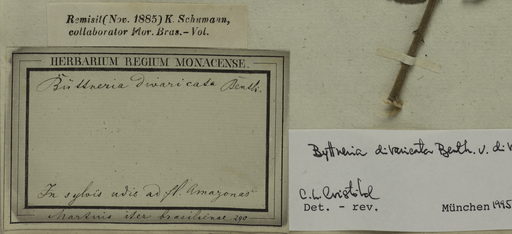 Remisit (Nov. 1885) K. Schumann,
collaborator Flor. Bras.-Vol.
HERBARIUM REGIUM MONACENSE.
Büttneria divaricata Benth.
In sylvis udis ad fl. Amazonas
Martius iter brasiliense.
Byttneria divaricata Benth. v. div
Det. - rev.
München 1995